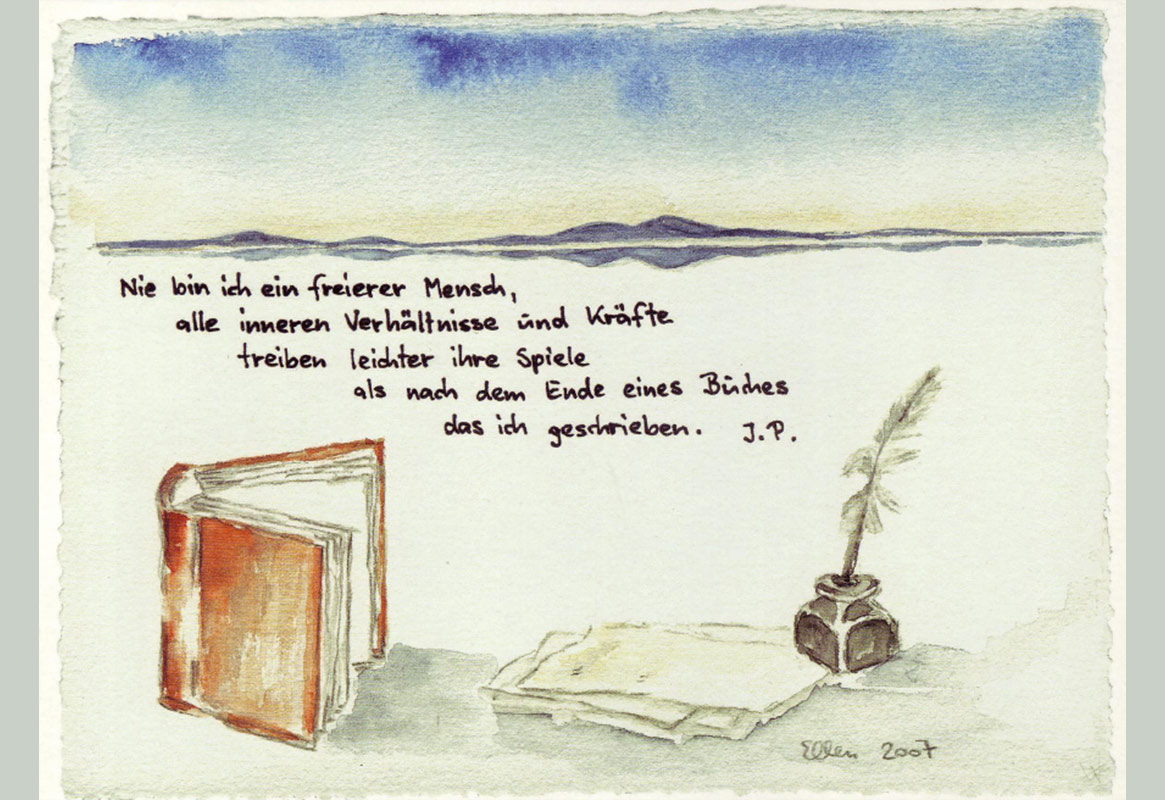 Nie bin ich ein freierer Mensch,
alle inneren Verhältnisse und Kräfte
treiben leichter ihre Spiele
als nach dem Ende eines Buches
das ich geschrieben. J.P.
Ellen 2007